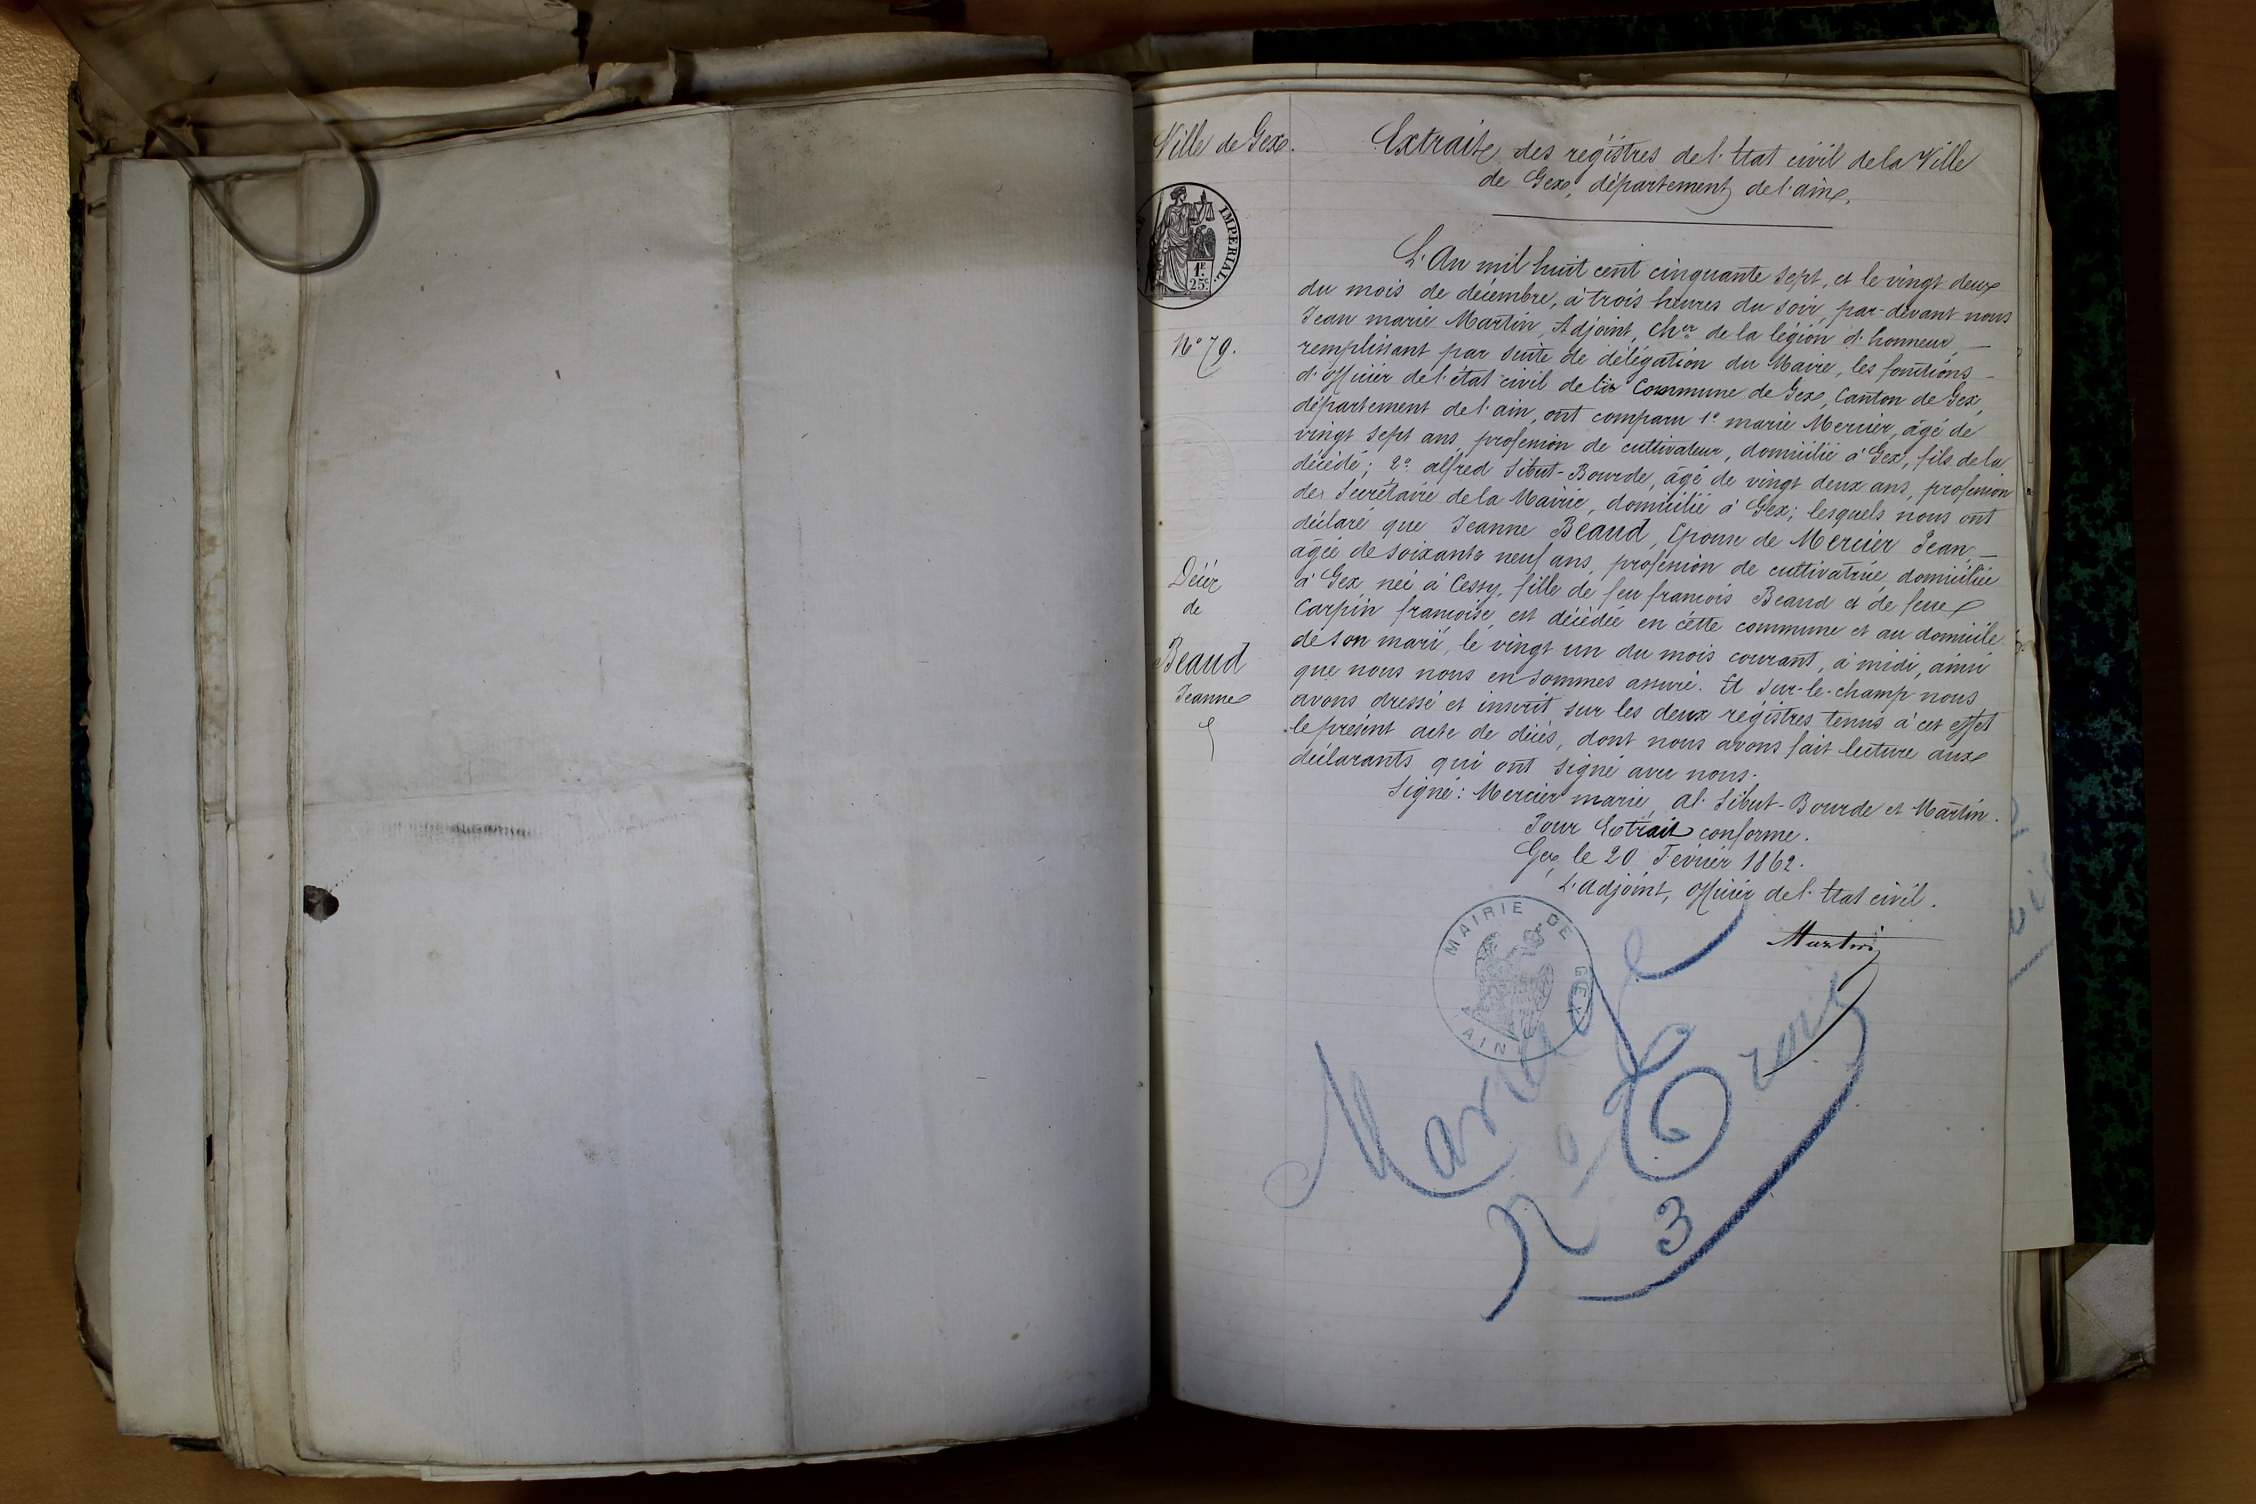 Ville de Gex.
IMPERIAL.
1F.
25c.
N° 79.
Décès
de
Beaud
Jeanne
Extrait des régistres de l'Etat civil de la Ville
de Gex, département de l'ain.
L'An mil huit cent cinquante sept, et le vingt deux
du mois de décembre, à trois heures du soir, par-devant nous
Jean marie Martin, Adjoint, Cher de la légion d'honneur
remplissant par suite de délégation du Maire, les fonctions
d'Officier de l'état civil de la Commune de Gex, Canton de Gex,
département de l'ain, ont comparu 1° marie Mercier, âgé de
vingt sept ans, profession de cultivateur, domicilié à Gex, fils de la
décédé; 2° alfred Sibut-Bourde, âgé de vingt deux ans, profession
de Secrétaire de la Mairie, domicilié à Gex; lesquels nous ont
déclaré que Jeanne Beaud, Epouse de Mercier Jean,
âgée de soixante neuf ans, profession de cultivatrice domiciliée
à Gex neé à Cessy, fille de feu francois Beaud et de feue
Carpin francoise, est décédée en cette commune et au domicile
de son mari, le vingt un du mois courant, à midi, ainsi
que nous nous en sommes assuré. Et sur-le-champ nous
avons dressé et inscrit sur les deux régistres tenus à cet effet
le présent acte de décès, dont nous avons fait lecture aux
déclarants qui ont signé avec nous.
Signé: Mercier marie, al. Sibut-Bourde et Martin.
Pour Extrait conforme.
Gex, le 20 Février 1862.
L'adjoint, officier de l'Etat civil.
Martin
MAIRIE DE GEX
AIN
Mariage
n° Trois
3